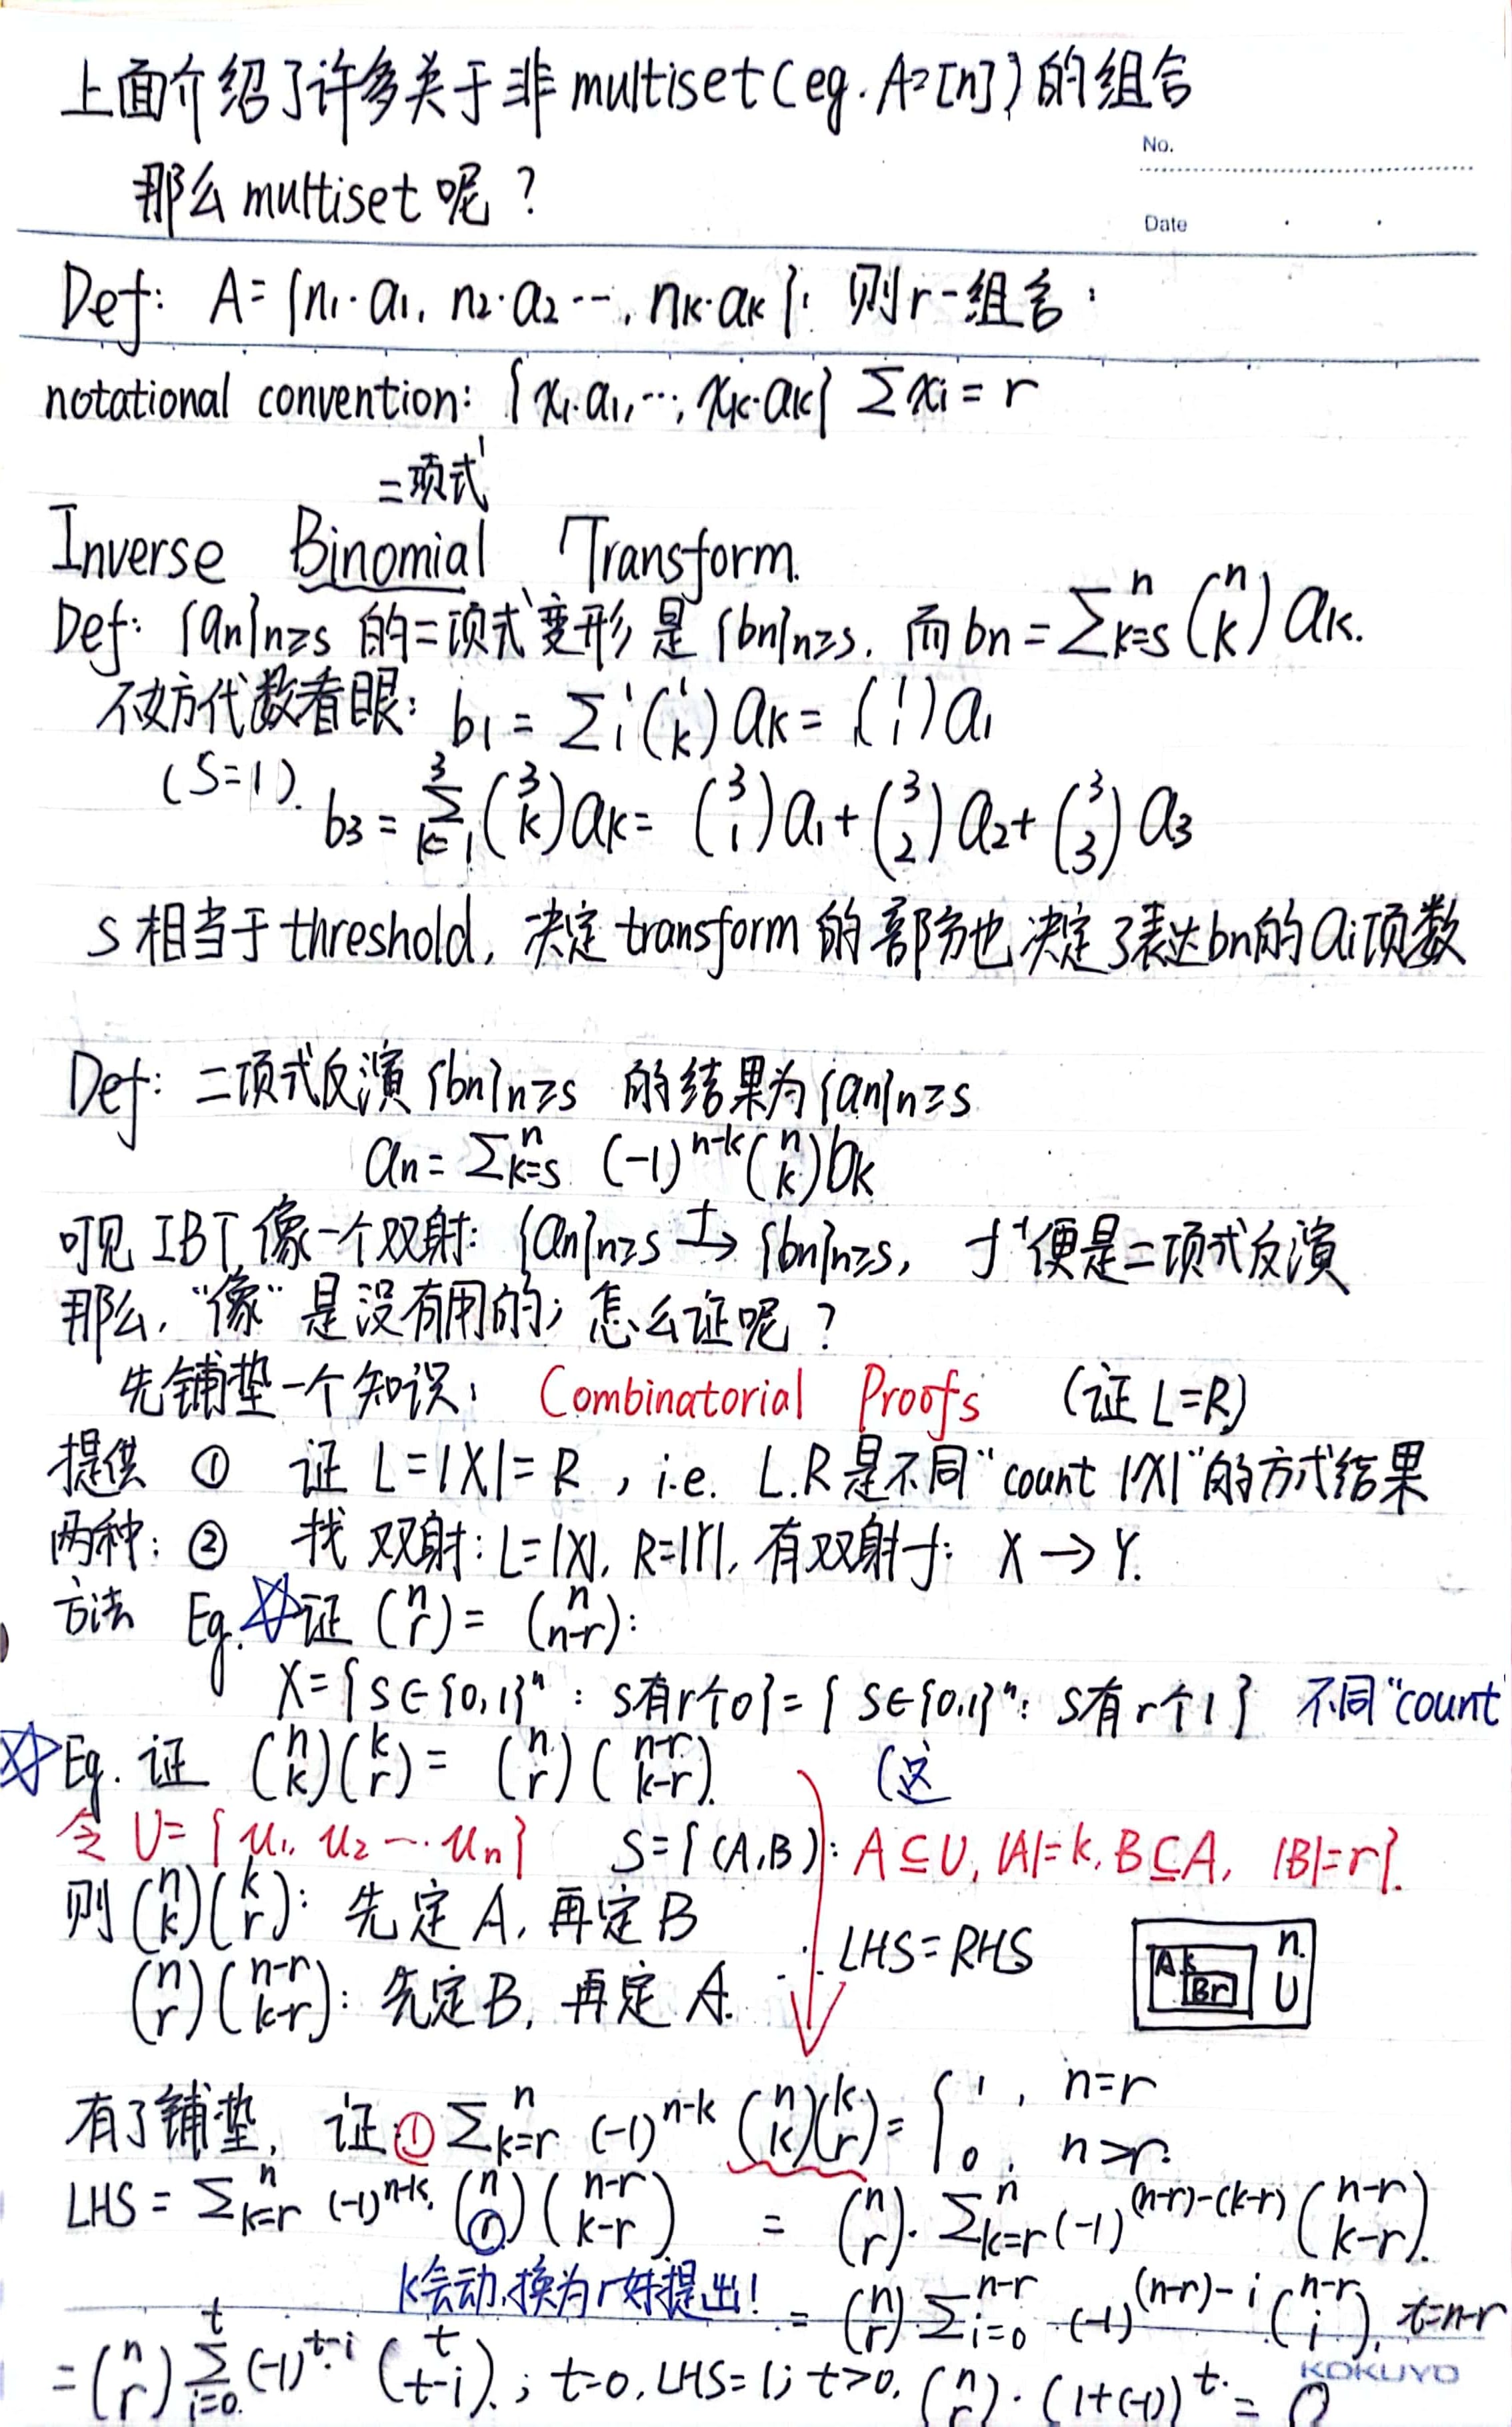 上面介绍了许多关于非 multiset (eg. A=[n]) 的组合
No.
那么 multiset 呢？
Date
Def: A={n₁·a₁, n₂·a₂ ..., nₖ·aₖ}; 则 r-组合:
notational convention: {x₁·a₁, ..., xₖ·aₖ} Σxᵢ = r
二项式
Inverse Binomial Transform.
Def: {aₙ}n≥s 的二项式变形是 {bₙ}n≥s. 而 bₙ = Σⁿₖ₌ₛ (n k) aₖ.
不妨代数看眼: b₁ = Σ₁¹ (1 k) aₖ = (1 1) a₁
(S=1). b₃ = Σ³ₖ₌₁ (3 k) aₖ = (3 1) a₁ + (3 2) a₂ + (3 3) a₃
S 相当于 threshold, 决定 transform 的部分也决定了表达 bn 的 ai 项数
Def: 二项式反演 {bₙ}n≥s 的结果为 {aₙ}n≥s
aₙ = Σⁿₖ₌ₛ (-1)ⁿ⁻ᵏ (n k) bₖ
可见 IBT 像一个双射: {aₙ}n≥s →f {bₙ}n≥s, f⁻¹ 便是二项式反演
那么, "像" 是没有用的; 怎么证呢？
先铺垫一个知识: Combinatorial Proofs (证 L=R)
提供 ① 证 L=|X|=R, i.e. L.R 是不同 "count |X|" 的方式结果
两种: ② 找双射: L=|X|, R=|Y|, 有双射 f: X → Y.
方法 Eg. ☆证 (n r) = (n n-r):
X={S∈{0,1}ⁿ : S有r个0}={S∈{0,1}ⁿ: S有r个1} 不同 "count
☆Eg. 证 (n k)(k r) = (n r)(n-r k-r). (这
令 U={u₁, u₂ ... uₙ} S={(A,B): A⊆U, |A|=k, B⊆A, |B|=r}.
则 (n k)(k r): 先定 A, 再定 B
∴ LHS=RHS
(n r)(n-r k-r): 先定 B, 再定 A.
A k B r n. U
有了铺垫, 证: ① Σⁿₖ₌ᵣ (-1)ⁿ⁻ᵏ (n k)(k r) = { 1, n=r
0, n>r.
LHS = Σⁿₖ₌ᵣ (-1)ⁿ⁻ᵏ. (n r)(n-r k-r) = (n r)· Σⁿₖ₌ᵣ (-1)⁽ⁿ⁻ʳ⁾⁻⁽ᵏ⁻ʳ⁾ (n-r k-r).
k会动, 换为r好提出! = (n r) Σⁿ⁻ʳᵢ₌₀ (-1)⁽ⁿ⁻ʳ⁾⁻ⁱ (n-r i), t=n-r
= (n r) Σᵗᵢ₌₀ (-1)ᵗ⁻ⁱ (t t-i).; t=0, LHS=1; t>0, (n r)·(1+(-1))ᵗ = 0
KOKUYO